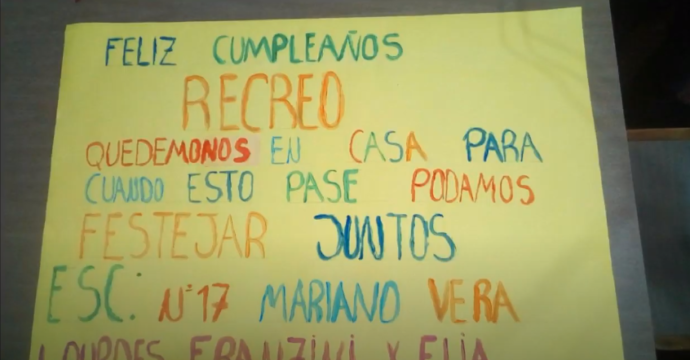 FELIZ CUMPLEAÑOS
RECREO
QUEDEMONOS EN CASA PARA
CUANDO ESTO PASE PODAMOS
FESTEJAR JUNTOS
ESC: Nº17 MARIANO VERA
LOURDES FRANZINI Y ELIA